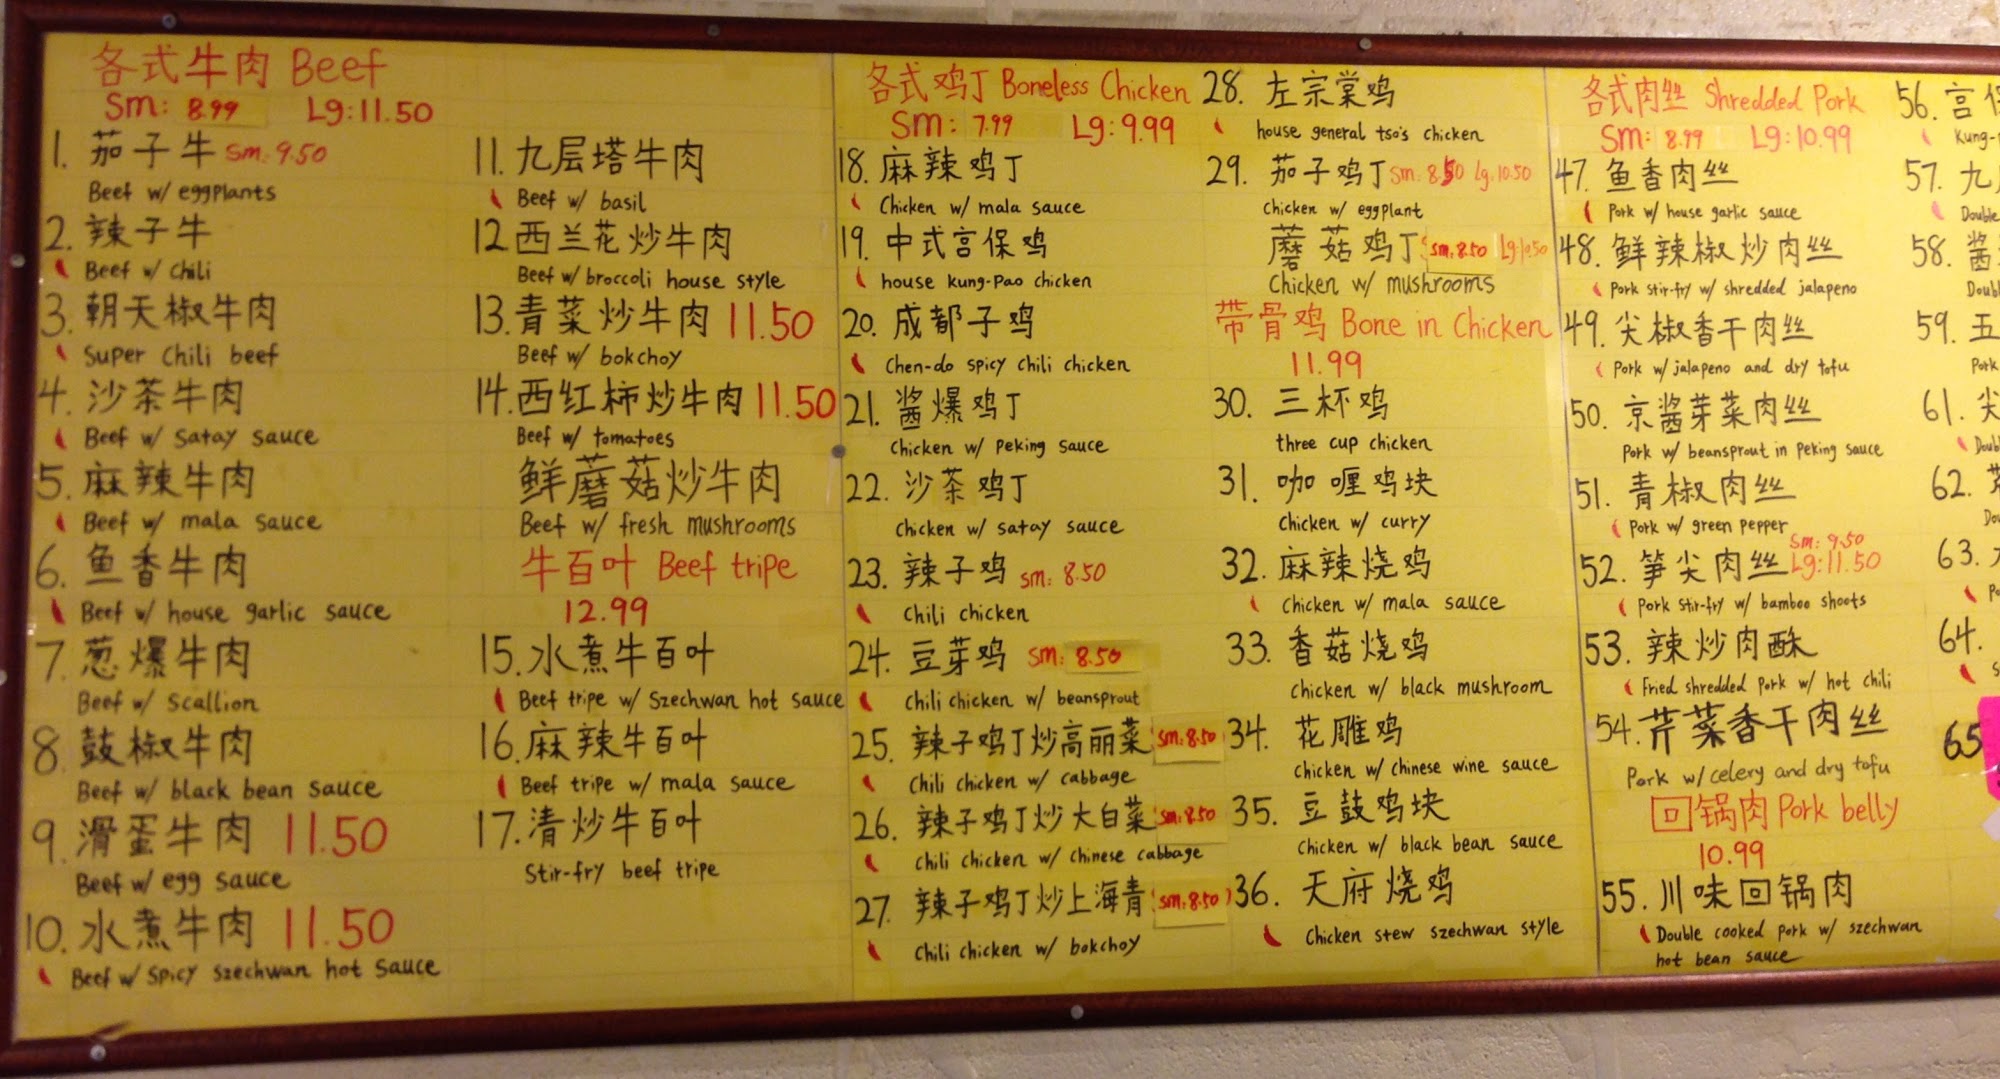 各式牛肉 Beef
Sm: 8.99 Lg:11.50
1. 茄子牛 Sm: 9.50
Beef w/ eggplants
2. 辣子牛
Beef w/ chili
3. 朝天椒牛肉
Super Chili beef
4. 沙茶牛肉
Beef w/ satay sauce
5. 麻辣牛肉
Beef w/ mala sauce
6. 鱼香牛肉
Beef w/ house garlic sauce
7. 葱爆牛肉
Beef w/ scallion
8. 鼓椒牛肉
Beef w/ black bean sauce
9. 滑蛋牛肉 11.50
Beef w/ egg sauce
10. 水煮牛肉 11.50
Beef w/ spicy szechwan hot sauce
11. 九层塔牛肉
Beef w/ basil
12 西兰花炒牛肉
Beef w/ broccoli house style
13. 青菜炒牛肉 11.50
Beef w/ bokchoy
14. 西红柿炒牛肉 11.50
Beef w/ tomatoes
鲜蘑菇炒牛肉
Beef w/ fresh mushrooms
牛百叶 Beef tripe
12.99
15. 水煮牛百叶
Beef tripe w/ Szechwan hot sauce
16. 麻辣牛百叶
Beef tripe w/ mala sauce
17. 清炒牛百叶
Stir-fry beef tripe
各式鸡丁 Boneless Chicken
Sm: 7.99 Lg: 9.99
18. 麻辣鸡丁
Chicken w/ mala sauce
19. 中式宫保鸡
house kung-Pao chicken
20. 成都子鸡
Chen-do spicy chili chicken
21. 酱爆鸡丁
Chicken w/ Peking sauce
22. 沙茶鸡丁
Chicken w/ satay sauce
23. 辣子鸡 Sm: 8.50
Chili chicken
24. 豆芽鸡 Sm: 8.50
Chili chicken w/ beansprout
25. 辣子鸡丁炒高丽菜 Sm: 8.50
Chili chicken w/ cabbage
26. 辣子鸡丁炒大白菜 Sm: 8.50
Chili chicken w/ chinese cabbage
27. 辣子鸡丁炒上海青 (Sm: 8.50)
Chili chicken w/ bokchoy
28. 左宗棠鸡
house general tso's chicken
29. 茄子鸡丁 Sm: 8.50 Lg: 10.50
Chicken w/ eggplant
蘑菇鸡丁 Sm: 8.50 Lg: 10.50
Chicken w/ mushrooms
带骨鸡 Bone in Chicken
11.99
30. 三杯鸡
three cup chicken
31. 咖喱鸡块
Chicken w/ curry
32. 麻辣烧鸡
Chicken w/ mala sauce
33. 香菇烧鸡
Chicken w/ black mushroom
34. 花雕鸡
Chicken w/ chinese wine sauce
35. 豆鼓鸡块
Chicken w/ black bean sauce
36. 天府烧鸡
Chicken stew szechwan style
各式肉丝 Shredded Pork
Sm: 8.99 Lg: 10.99
47. 鱼香肉丝
Pork w/ house garlic sauce
48. 鲜辣椒炒肉丝
Pork stir-fry w/ shredded jalapeno
49. 尖椒香干肉丝
Pork w/ jalapeno and dry tofu
50. 京酱芽菜肉丝
Pork w/ beansprout in Peking sauce
51. 青椒肉丝
Pork w/ green pepper
52. 笋尖肉丝 Sm: 9.50 Lg: 11.50
Pork stir-fry w/ bamboo shoots
53. 辣炒肉酥
Fried shredded pork w/ hot chili
54. 芹菜香干肉丝
Pork w/ celery and dry tofu
回锅肉 Pork belly
10.99
55. 川味回锅肉
Double cooked pork w/ szechwan
hot bean sauce
56. 宫保
Kung-p
57. 九
Double
58. 酱
Doub
59. 五
Pork
61. 尖
Doub
62.
Do
63.
Po
64.
S
65